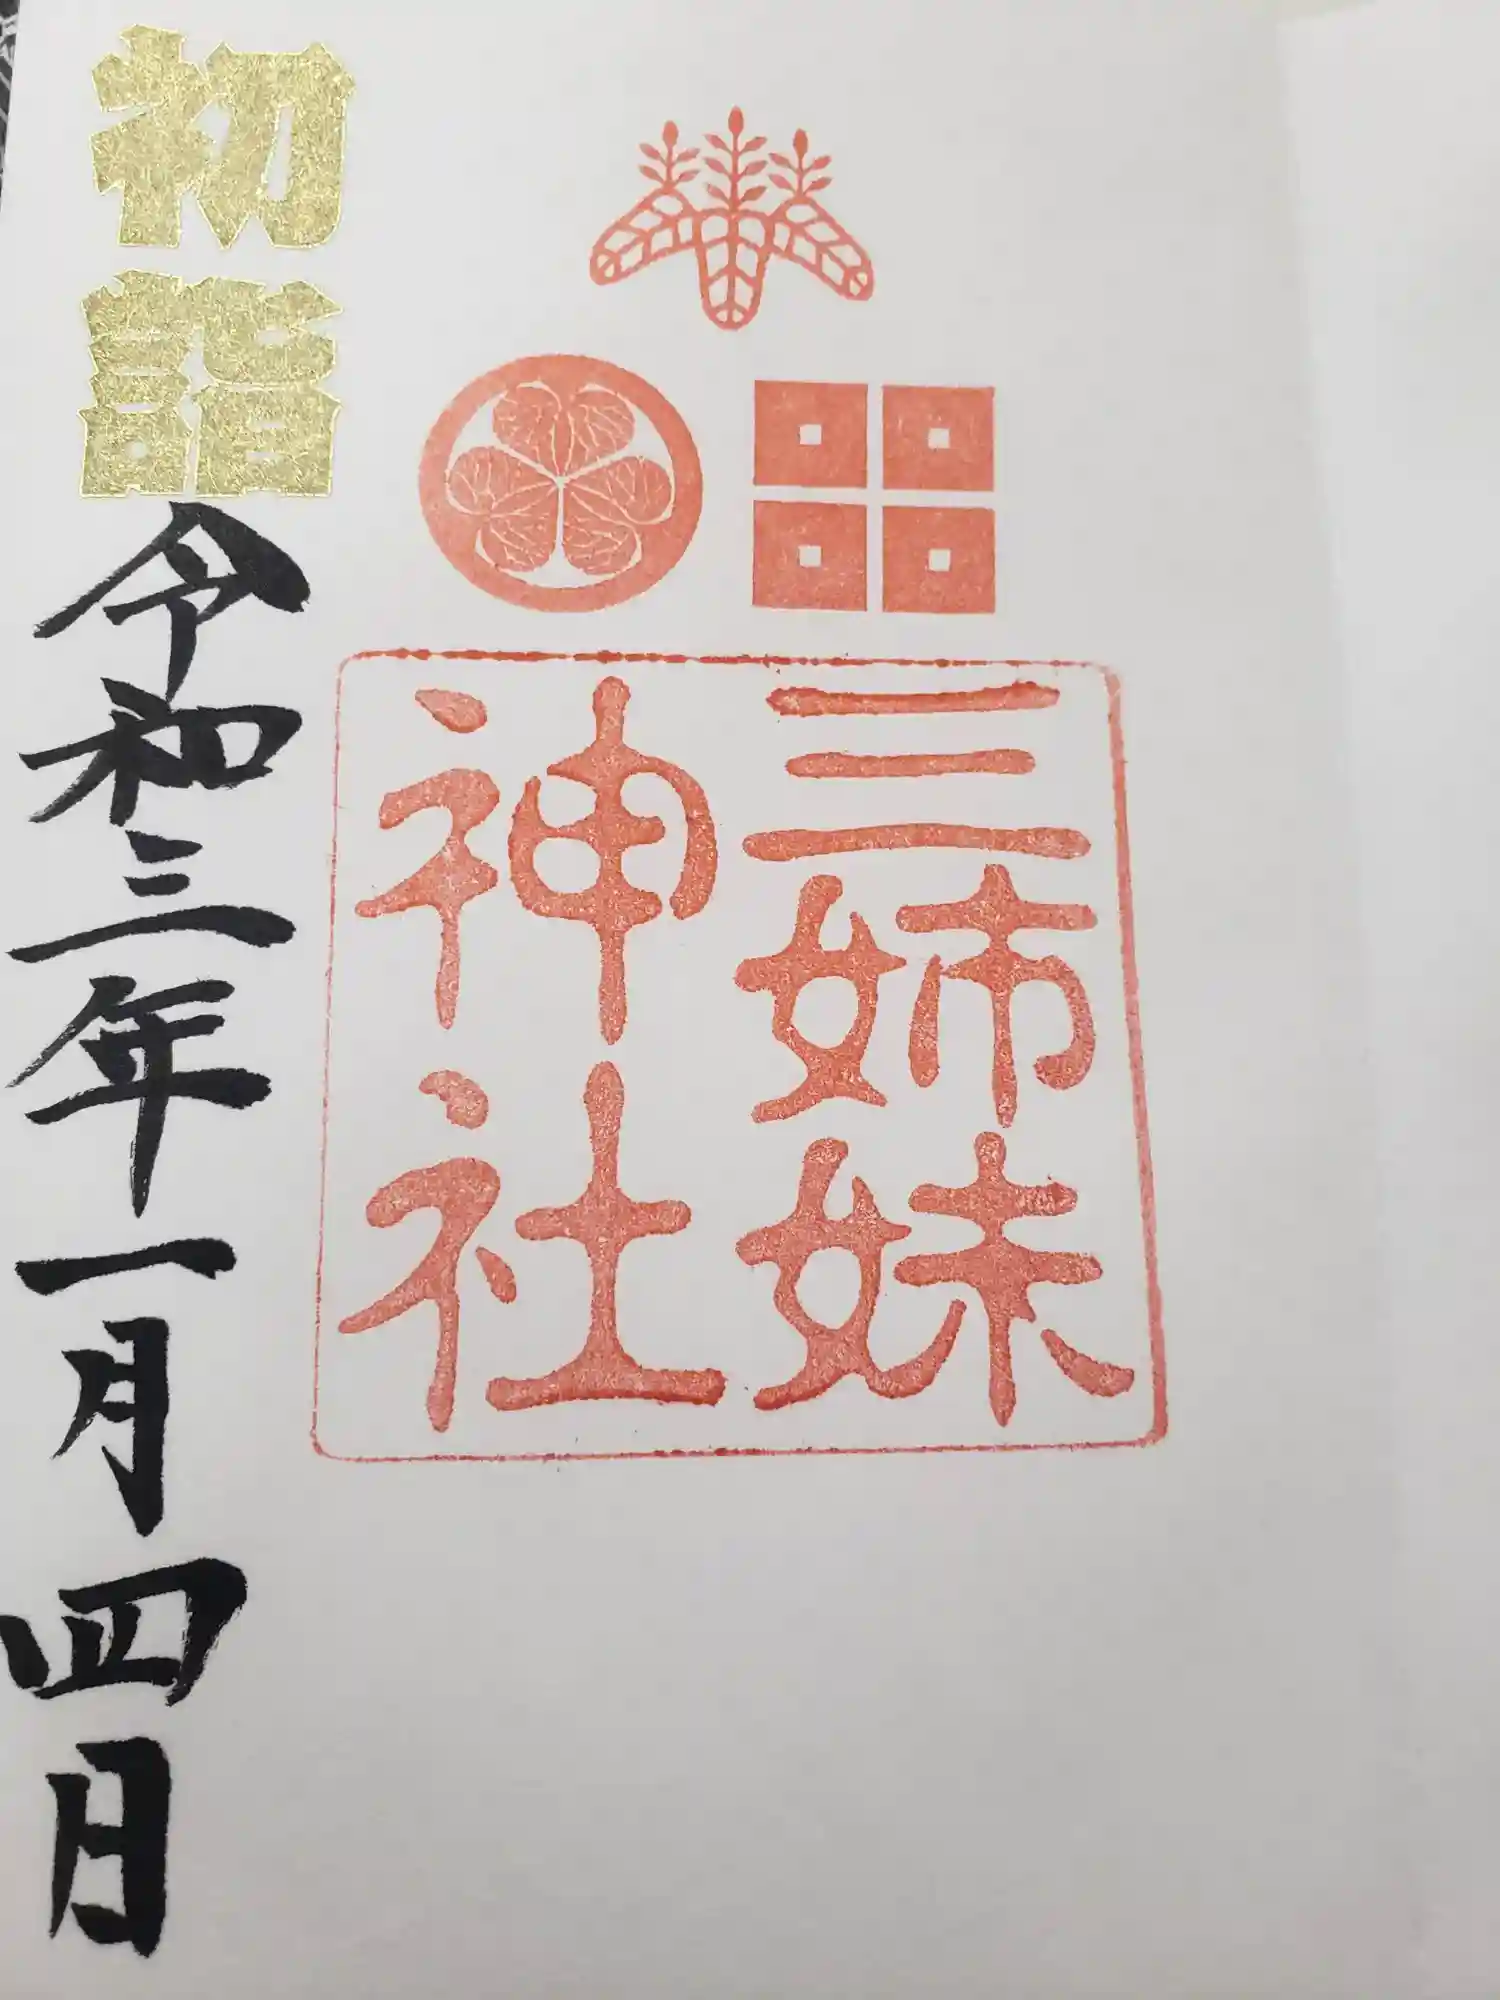 三姉妹
神社
初詣
令和三年一月四日